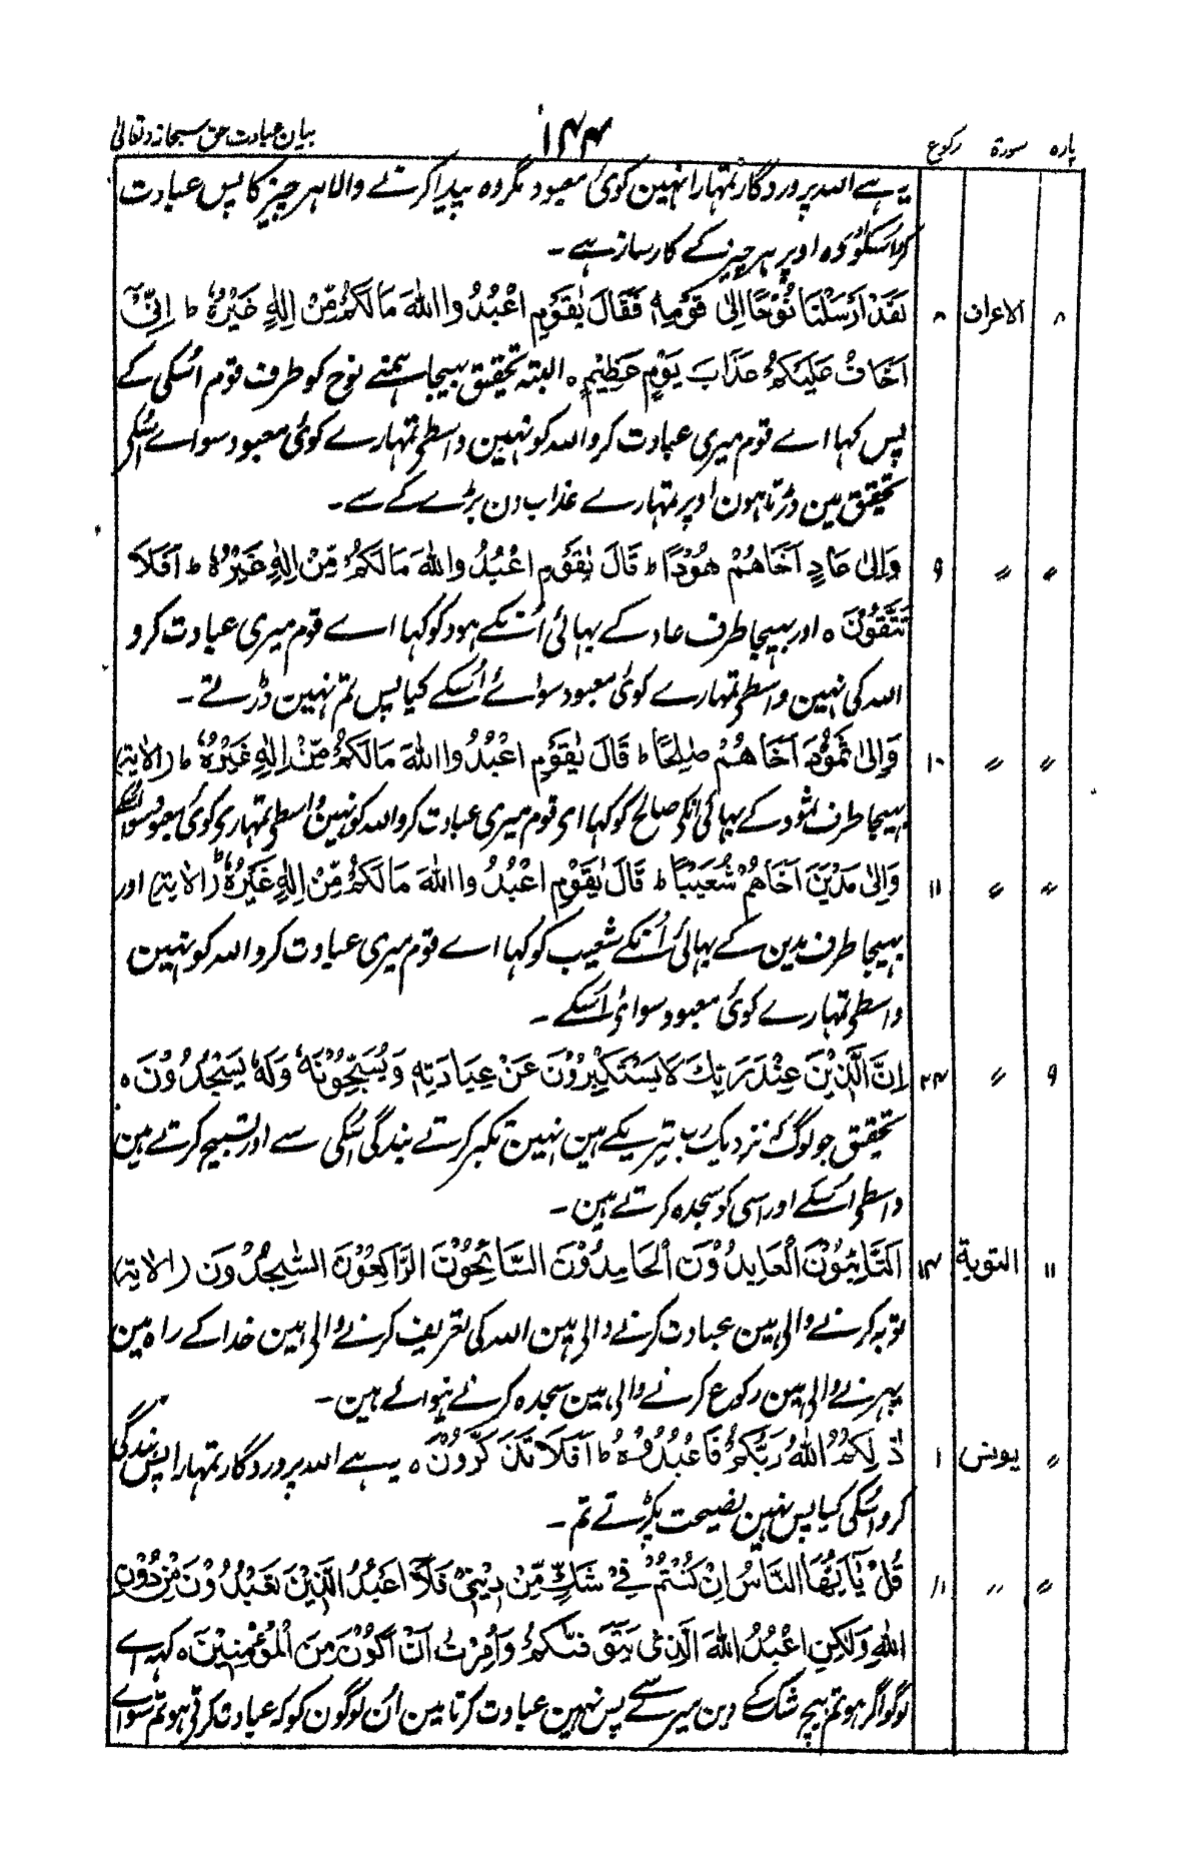 پارہ سورۃ رکوع ۱۴۴ بیان عبادت حق سبحانہ و تعالیٰ
یہ ہے اللہ پروردگار تمہارا نہین کوئی معبود مگر وہ پیدا کرنے والا ہر چیز کا پس عبادت
کرو اسکو وہ اوپر ہر چیز کے کارساز ہے ۔
۸ الاعراف ۸ لَقَدْ اَرْسَلْنَا نُوْحًا اِلٰی قَوْمِهٖ فَقَالَ یٰقَوْمِ اعْبُدُوا اللّٰهَ مَا لَکُمْ مِّنْ اِلٰهٍ غَیْرُهٗ ؕ اِنِّیْۤ
اَخَافُ عَلَیْکُمْ عَذَابَ یَوْمٍ عَظِیْمٍ ہ البتہ تحقیق بہیجا ہمنے نوح کو طرف قوم اسکی کے
پس کہا اے قوم میری عبادت کرو اللہ کو نہین واسطے تمہارے کوئی معبود سواے اسکی
تحقیق مین ڈرتا ہون اوپر تمہارے عذاب دن بڑے کے سے ۔
〃 〃 ۹ وَاِلٰی عَادٍ اَخَاهُمْ هُوْدًا ؕ قَالَ یٰقَوْمِ اعْبُدُوا اللّٰهَ مَا لَکُمْ مِّنْ اِلٰهٍ غَیْرُهٗ ؕ اَفَلَا
تَتَّقُوْنَ ہ اور بہیجا طرف عاد کے بہائی اُنکے ہود کو کہا اے قوم میری عبادت کرو
اللہ کی نہین واسطے تمہارے کوئی معبود سوائے اُسکے کیا پس تم نہین ڈرتے ۔
〃 〃 ۱۰ وَاِلٰی ثَمُوْدَ اَخَاهُمْ صٰلِحًا ؕ قَالَ یٰقَوْمِ اعْبُدُوا اللّٰهَ مَا لَکُمْ مِّنْ اِلٰهٍ غَیْرُهٗ ؕ (الاٰیۃ)
بہیجا طرف ثمود کے بہائی انکی صالح کو کہا ای قوم میری عبادت کرو اللہ کو نہین واسطے تمہاری کوئی معبود سوا اُسکے
〃 〃 ۱۱ وَاِلٰی مَدْیَنَ اَخَاهُمْ شُعَیْبًا ؕ قَالَ یٰقَوْمِ اعْبُدُوا اللّٰهَ مَا لَکُمْ مِّنْ اِلٰهٍ غَیْرُهٗ ؕ (الاٰیۃ) اور
بہیجا طرف مدین کے بہائی اُنکے شعیب کو کہا اے قوم میری عبادت کرو اللہ کو نہین
واسطے تمہارے کوئی معبود سوائے اُسکے ۔
۹ 〃 ۲۴ اِنَّ الَّذِیْنَ عِنْدَ رَبِّكَ لَا یَسْتَکْبِرُوْنَ عَنْ عِبَادَتِهٖ وَیُسَبِّحُوْنَهٗ وَلَهٗ یَسْجُدُوْنَ ہ
تحقیق جو لوگ نزدیک رب تیرے کے ہین نہین تکبر کرتے بندگی اسکی سے اور تسبیح کرتے ہین
واسطے اسکے اور اسی کو سجدہ کرتے ہین ۔
۱۱ التوبۃ ۱۴ اَلتَّائِبُوْنَ الْعَابِدُوْنَ الْحَامِدُوْنَ السَّائِحُوْنَ الرَّاکِعُوْنَ السّٰجِدُوْنَ (الاٰیۃ)
توبہ کرنے والی ہین عبادت کرنے والی ہین اللہ کی تعریف کرنے والی ہین خدا کے راہ مین
پہرنے والی ہین رکوع کرنے والی ہین سجدہ کرنے نیوالے ہین ۔
〃 یونس ۱ ذٰلِکُمُ اللّٰهُ رَبُّکُمْ فَاعْبُدُوْهُ ؕ اَفَلَا تَذَکَّرُوْنَ ہ یہ ہے اللہ پروردگار تمہارا پس بندگی
کرو اسکی کیا پس نہین نصیحت پکڑتے تم ۔
〃 〃 ۱۱ قُلْ یٰۤاَیُّهَا النَّاسُ اِنْ کُنْتُمْ فِیْ شَكٍّ مِّنْ دِیْنِیْ فَلَاۤ اَعْبُدُ الَّذِیْنَ تَعْبُدُوْنَ مِنْ دُوْنِ
اللّٰهِ وَلٰکِنْ اَعْبُدُ اللّٰهَ الَّذِیْ یَتَوَفّٰکُمْ وَاُمِرْتُ اَنْ اَکُوْنَ مِنَ الْمُؤْمِنِیْنَ ہ کہہ اے
لوگو اگر ہو تم بیچ شک کے دین میرے سے پس نہین عبادت کرتا مین اُن لوگون کو کہ عبادت کرتی ہو تم سواے